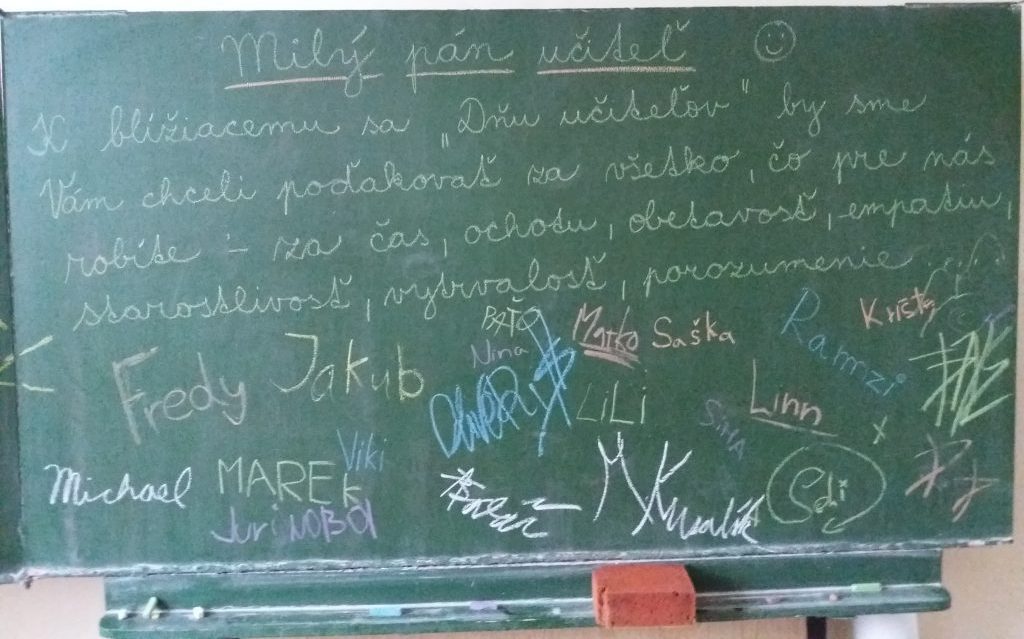 Milý pán učiteľ
K blížiacemu sa „Dňu učiteľov" by sme
Vám chceli poďakovať za všetko, čo pre nás
robíte - za čas, ochotu, obetavosť, empatiu,
starostlivosť, vytrvalosť, porozumenie...
BAŤO Matko Saška Ramzi Kristy
Nina
Fredy Jakub LiLi Linn
SiMA
Viki
Michael MAREK Edi